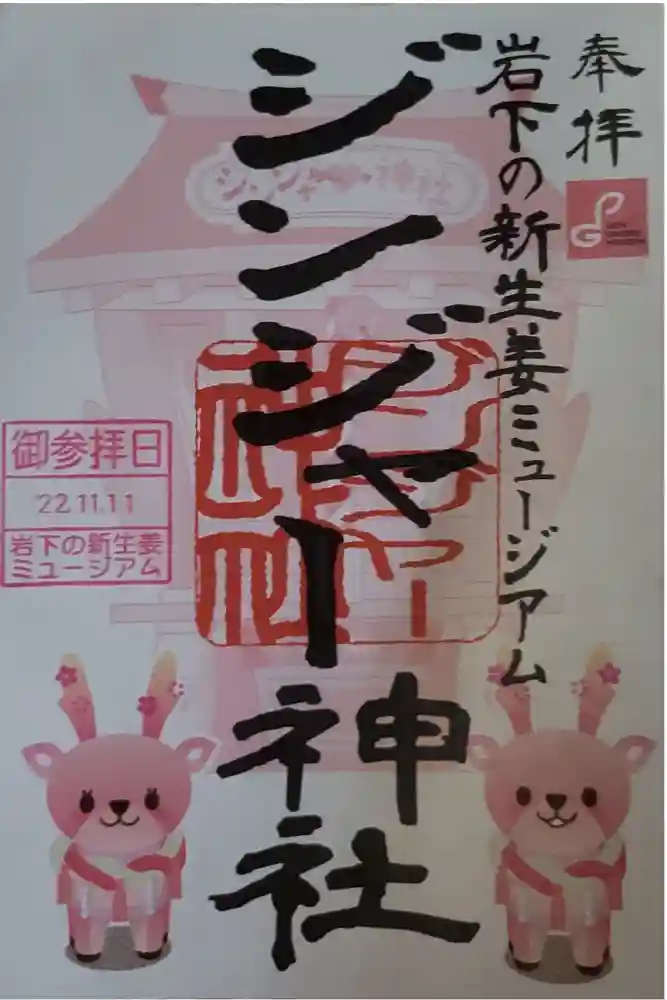 奉拝
岩下の新生姜ミュージアム
ジンジャー神社
ジンジャー神社
ジンジャー神社
御参拝日
22.11.11
岩下の新生姜
ミュージアム